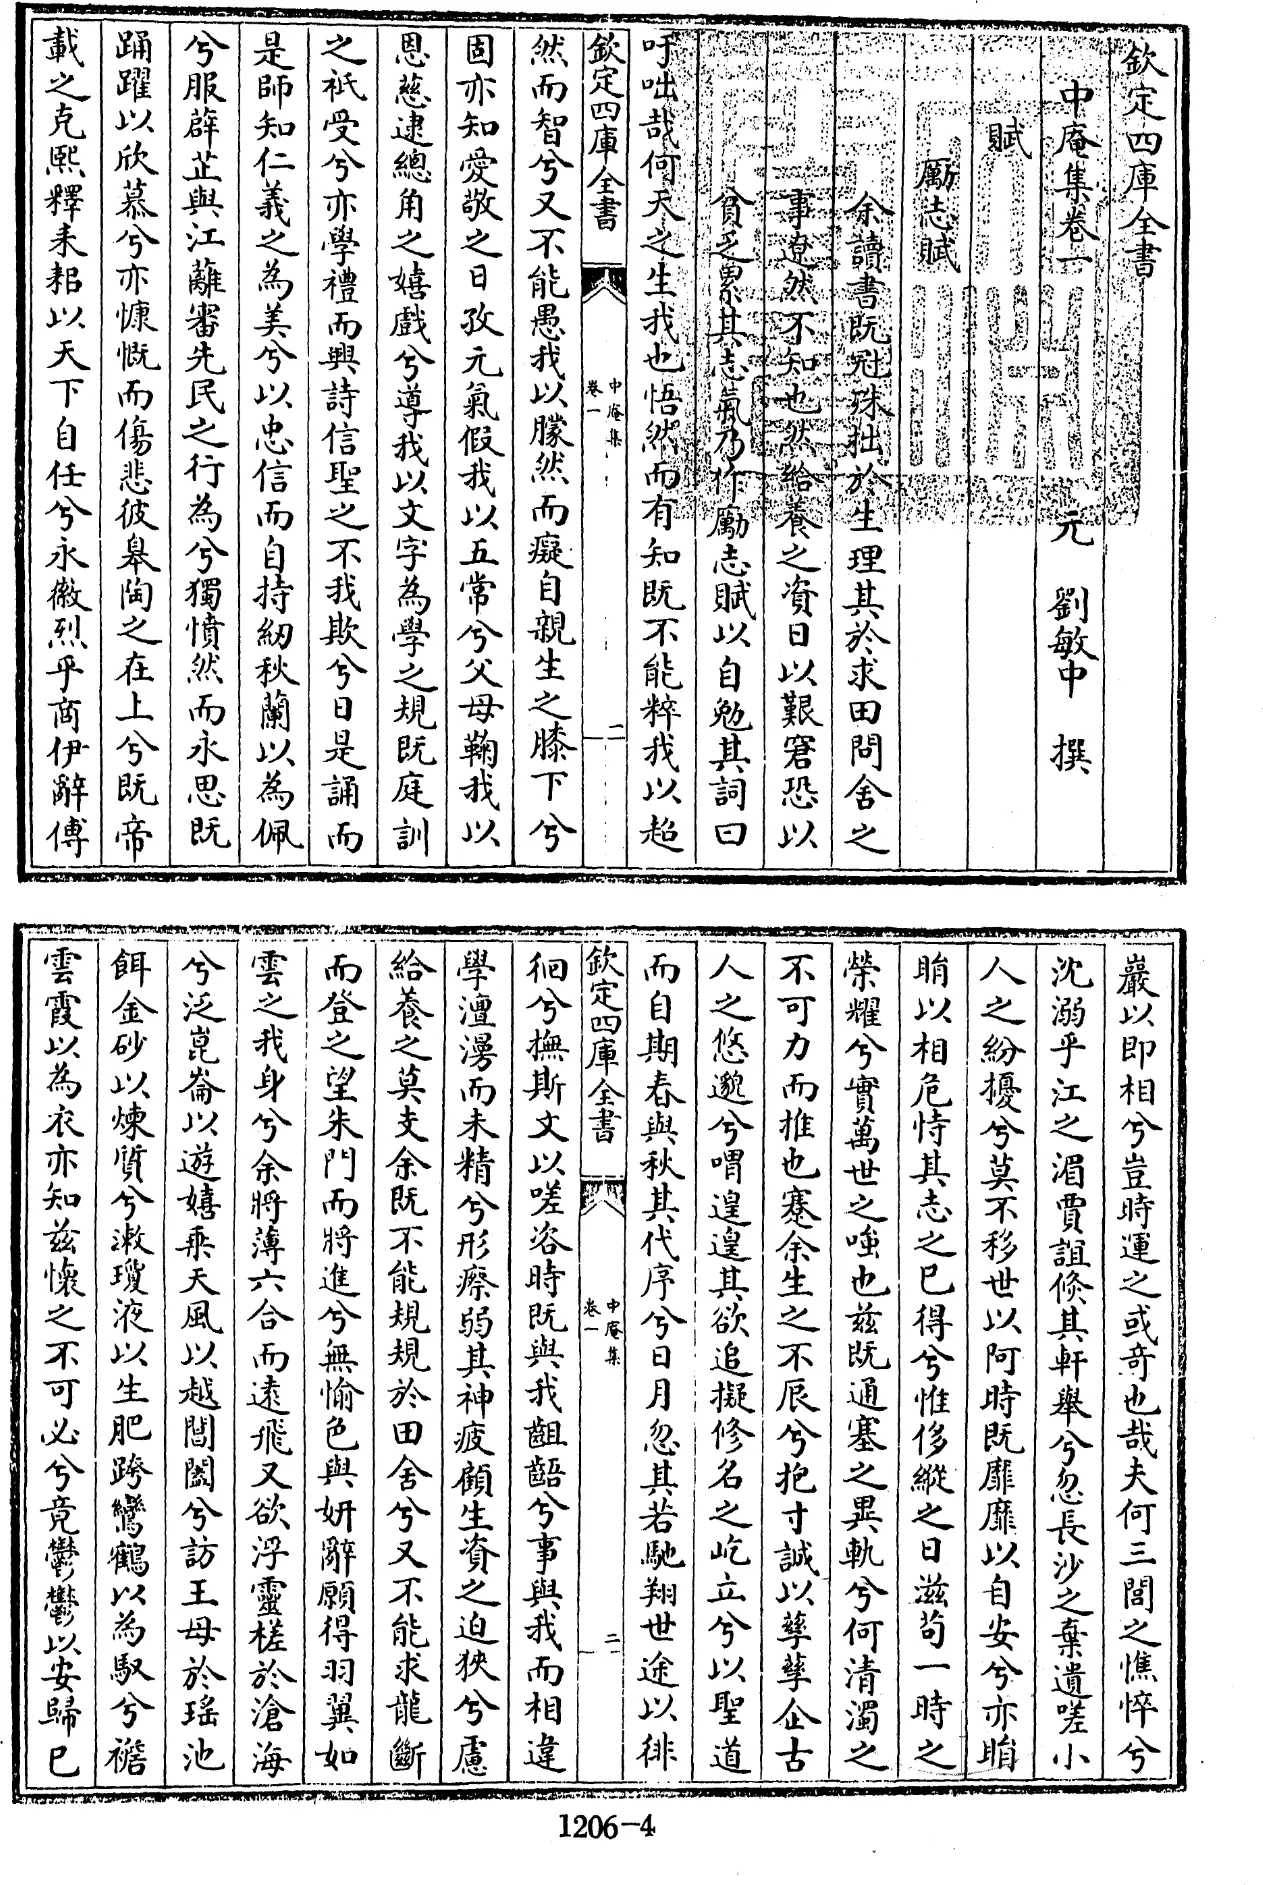 欽定四庫全書
中庵集卷一　　元　劉敏中　撰
賦
勵志賦
余讀書既冠殊拙於生理其於求田問舍之
事遼然不知也然給養之資日以艱窘恐以
貧乏累其志氣乃作勵志賦以自勉其詞曰
吁咄哉何天之生我也悟然而有知既不能粹我以超
欽定四庫全書　中庵集卷一　一
然而智兮又不能愚我以朦然而癡自親生之膝下兮
固亦知愛敬之日孜元氣假我以五常兮父母鞠我以
恩慈逮總角之嬉戲兮導我以文字為學之規既庭訓
之祇受兮亦學禮而興詩信聖之不我欺兮日是誦而
是師知仁義之為美兮以忠信而自持紉秋蘭以為佩
兮服辟芷與江蘺審先民之行為兮獨憤然而永思既
踊躍以欣慕兮亦慷慨而傷悲彼皋陶之在上兮既帝
載之克熙釋耒耜以天下自任兮永徽烈乎商伊辭傅
巖以即相兮豈時運之或奇也哉夫何三閭之憔悴兮
沈溺乎江之湄賈誼倐其軒舉兮忽長沙之棄遺嗟小
人之紛擾兮莫不移世以阿時既靡靡以自安兮亦睊
睊以相危恃其志之已得兮惟侈縱之日滋苟一時之
榮耀兮實萬世之嗤也兹既通塞之異軌兮何清濁之
不可力而推也蹇余生之不辰兮抱寸誠以孳孳企古
人之悠邈兮喟遑遑其欲追擬修名之屹立兮以聖道
而自期春與秋其代序兮日月忽其若馳翔世途以徘
欽定四庫全書　中庵集卷一　二
徊兮撫斯文以嗟咨時既與我齟齬兮事與我而相違
學澶漫而未精兮形瘵弱其神疲顧生資之迫狹兮慮
給養之莫支余既不能規規於田舍兮又不能求龍斷
而登之望朱門而將進兮無愉色與妍辭願得羽翼如
雲之我身兮余將薄六合而遠飛又欲浮靈槎於滄海
兮泛崑崙以遊嬉乘天風以越閶闔兮訪王母於瑤池
餌金砂以煉質兮漱瓊液以生肥跨鸞鶴以為馭兮襜
雲霞以為衣亦知兹懷之不可必兮竟鬱鬱以安歸已
1206-4